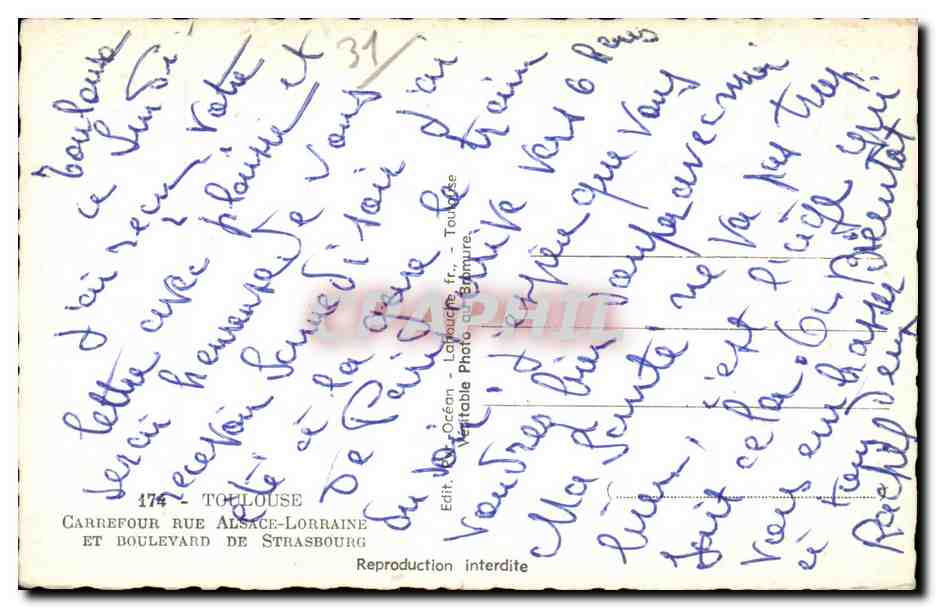 31
Toulouse
ce Lundi
J'ai reçu votre
lettre avec plaisir et
serai heureuse de vous
recevoir Samedi soir
été à la gare j'ai
De Paris le train
du soir arrive vers 6 heures
J'espère que vous
voudrez bien souper avec moi
Ma Santé ne va pas trop
bien, c'est l'âge qui
fait cela.
vous embrasser
à tous
Rachel
174 - TOULOUSE
CARREFOUR RUE ALSACE-LORRAINE
ET BOULEVARD DE STRASBOURG
Reproduction interdite
Edit. Océan - Labouche fr., - Toulouse
Véritable Photo au Bromure
CPAPHIL